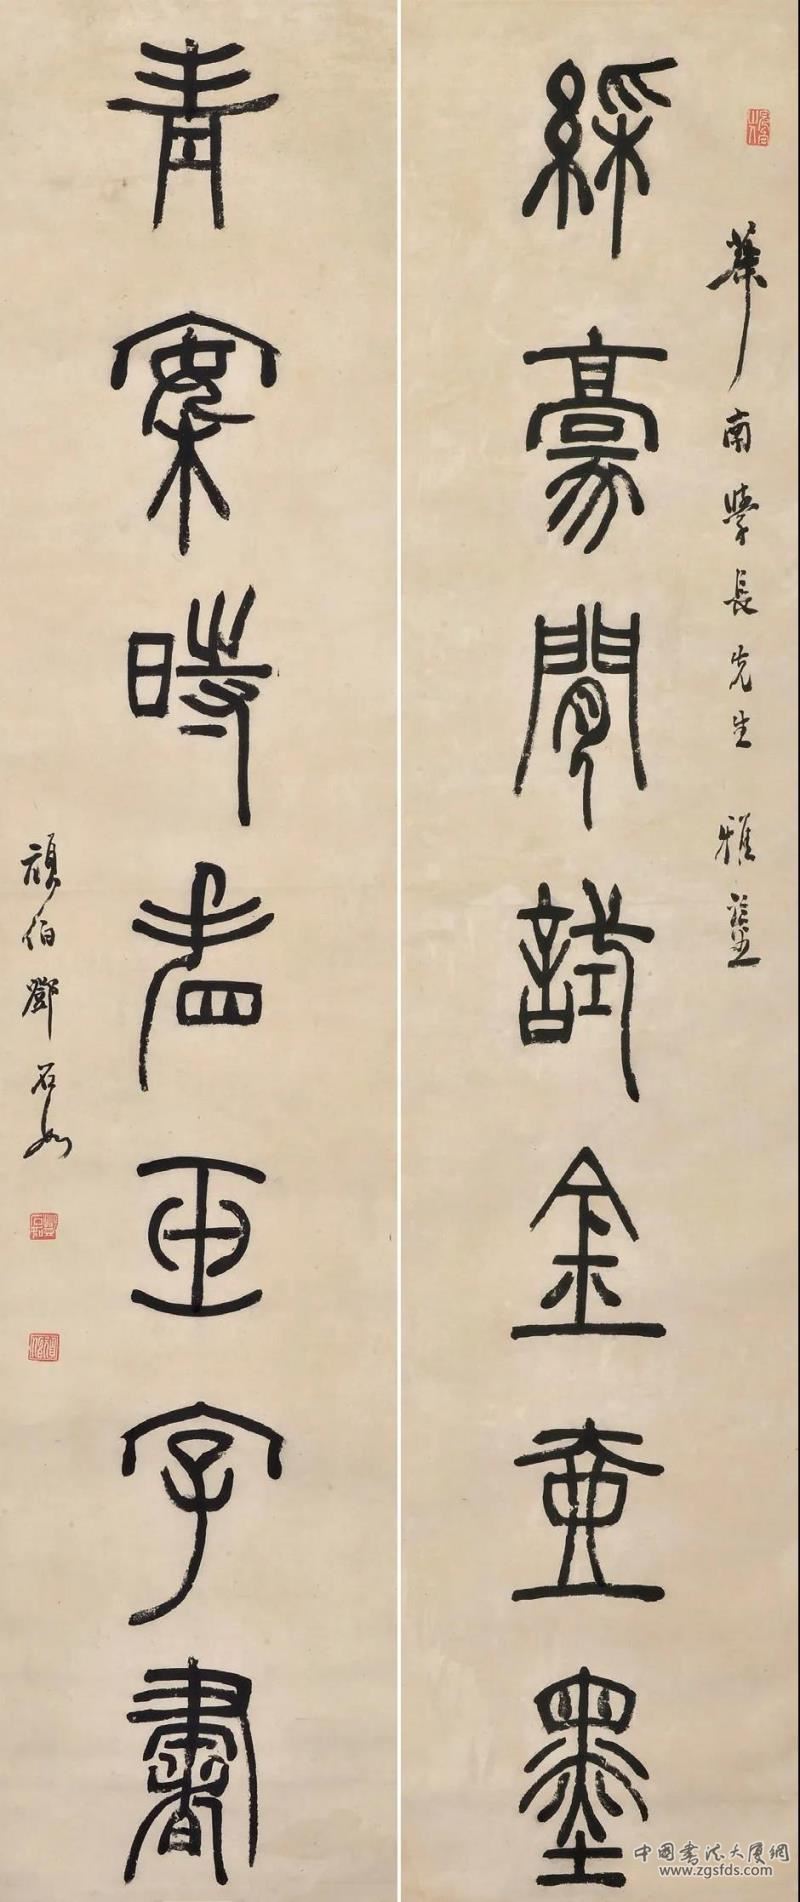 華南學長先生 雅鑒
綵豪閒試金壺墨
青案時看玉字書
頑伯鄧石如
中國書法大廈網
www.zgsfds.com